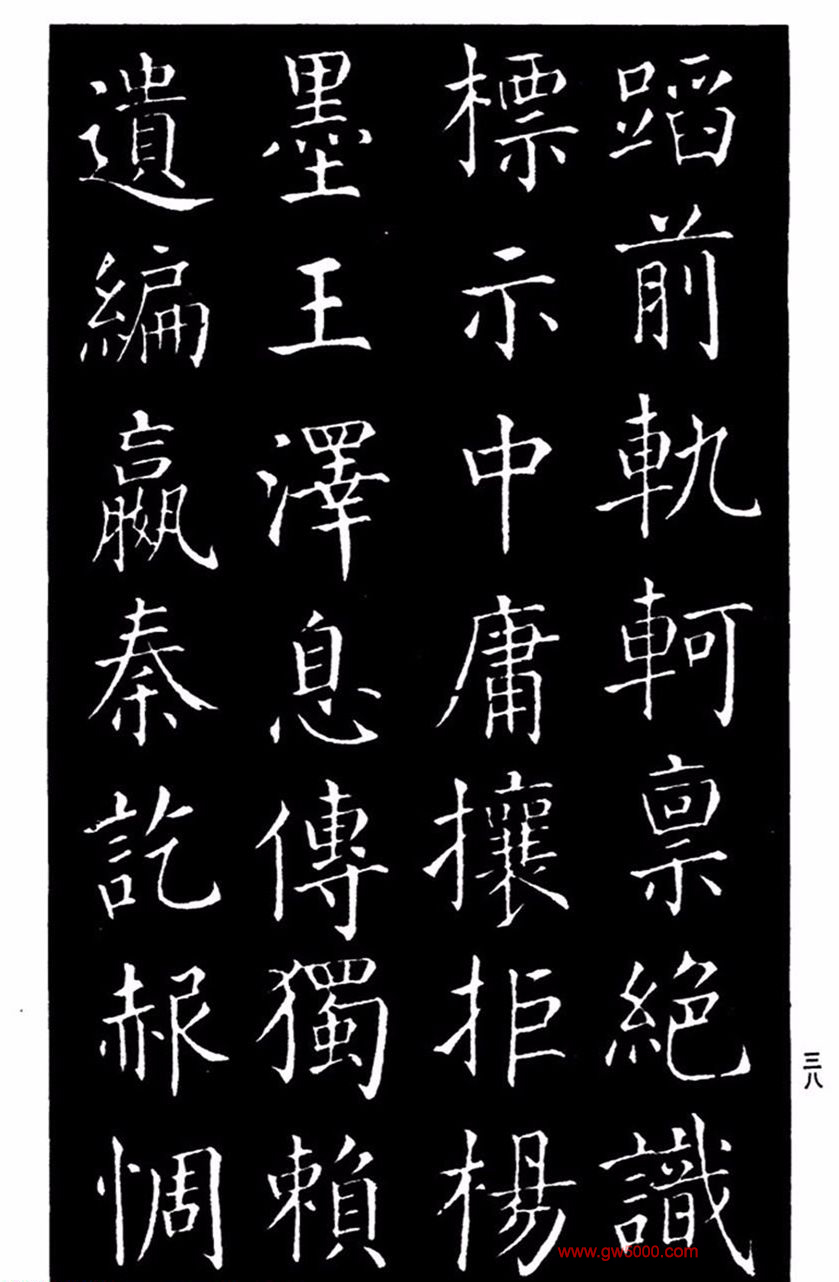 蹈前軌軻禀絕識
標示中庸攘拒楊
墨王澤息傳獨賴
遺編嬴秦訖赧惆
三八
www.gw5000.com